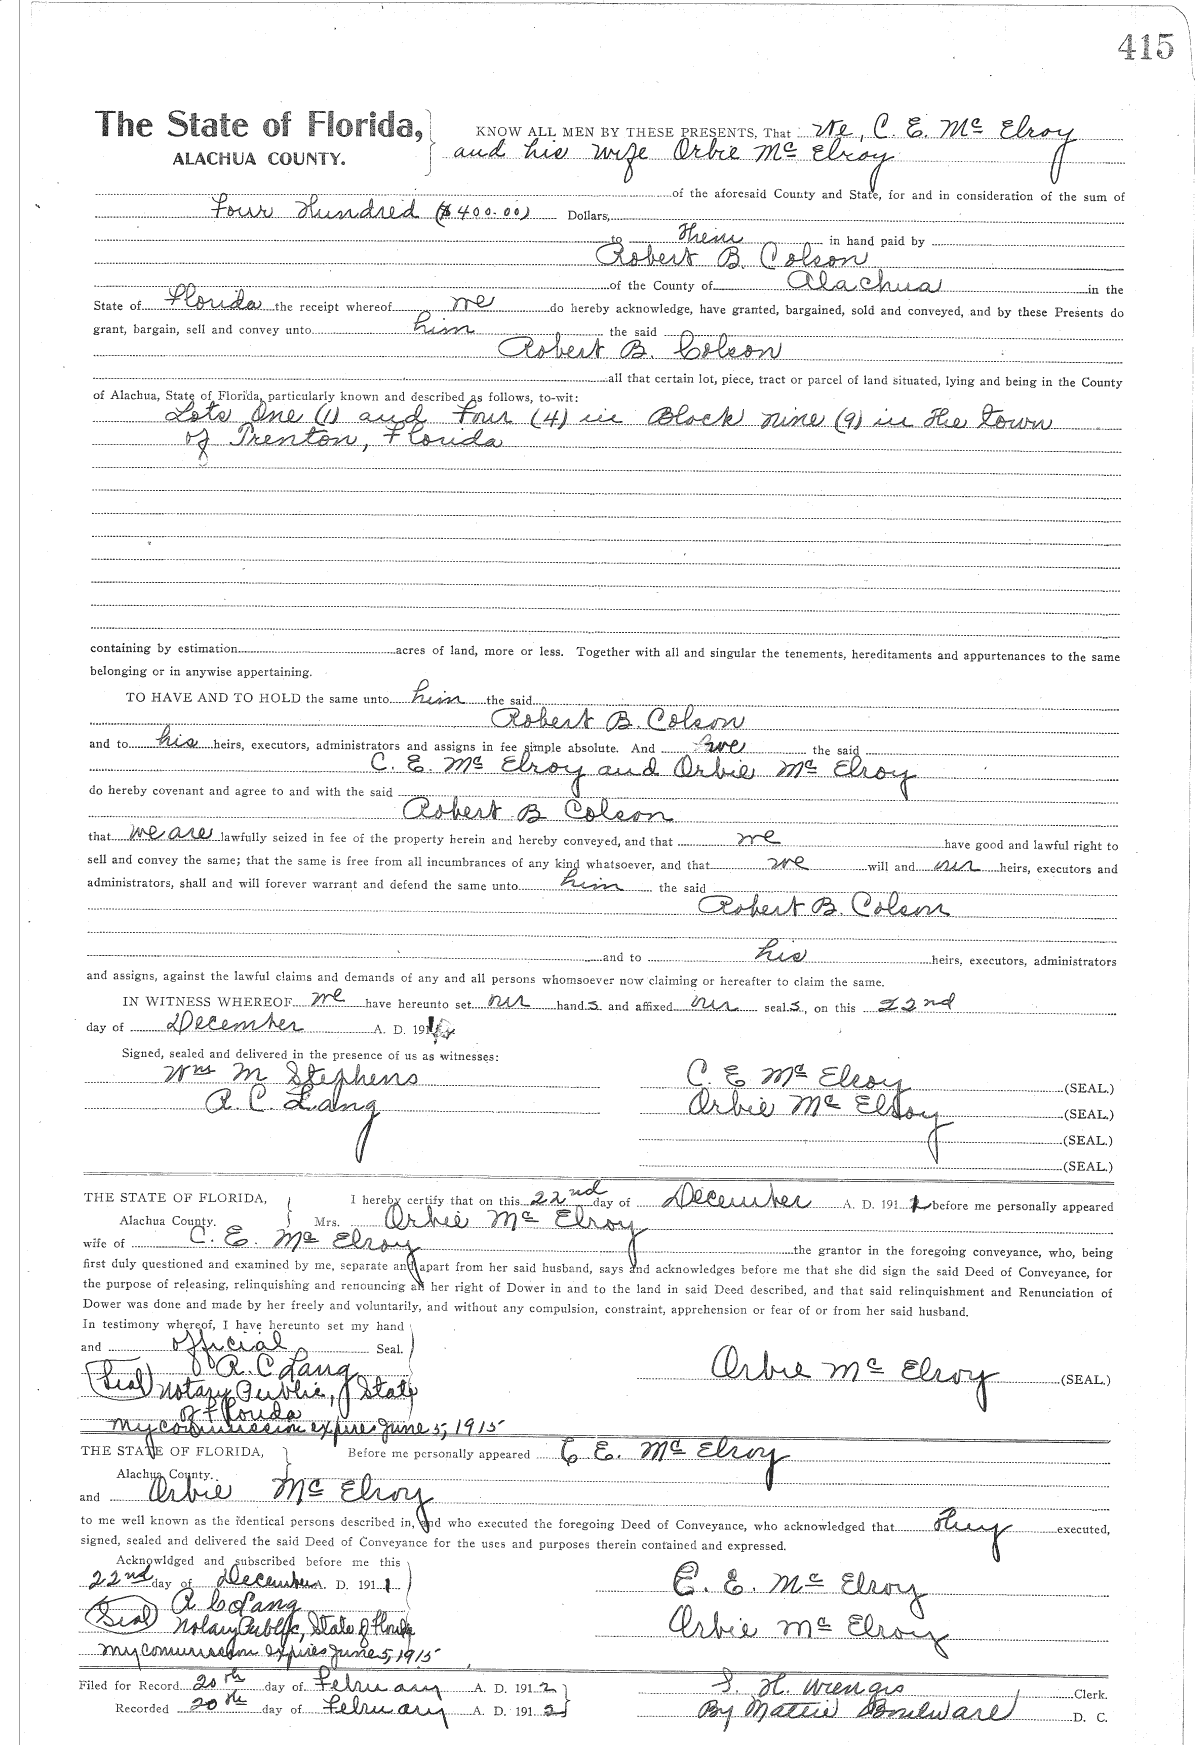 415
The State of Florida, KNOW ALL MEN BY THESE PRESENTS, That We, C. E. Mc Elroy
ALACHUA COUNTY. and his wife Orbie Mc Elroy
of the aforesaid County and State, for and in consideration of the sum of
Four Hundred ($400.00) Dollars,
to them in hand paid by
Robert B. Colson
of the County of Alachua in the
State of Florida the receipt whereof we do hereby acknowledge, have granted, bargained, sold and conveyed, and by these Presents do
grant, bargain, sell and convey unto him the said
Robert B. Colson
all that certain lot, piece, tract or parcel of land situated, lying and being in the County
of Alachua, State of Florida, particularly known and described as follows, to-wit:
Lots One (1) and Four (4) in Block nine (9) in the town
of Trenton, Florida
containing by estimation acres of land, more or less. Together with all and singular the tenements, hereditaments and appurtenances to the same
belonging or in anywise appertaining.
TO HAVE AND TO HOLD the same unto him the said
Robert B. Colson
and to his heirs, executors, administrators and assigns in fee simple absolute. And we the said
C. E. Mc Elroy and Orbie Mc Elroy
do hereby covenant and agree to and with the said
Robert B Colson
that we are lawfully seized in fee of the property herein and hereby conveyed, and that we have good and lawful right to
sell and convey the same; that the same is free from all incumbrances of any kind whatsoever, and that we will and our heirs, executors and
administrators, shall and will forever warrant and defend the same unto him the said
Robert B. Colson
and to his heirs, executors, administrators
and assigns, against the lawful claims and demands of any and all persons whomsoever now claiming or hereafter to claim the same.
IN WITNESS WHEREOF we have hereunto set our hands and affixed our seals, on this 22nd
day of December A. D. 191
Signed, sealed and delivered in the presence of us as witnesses:
Wm M Stephens C. E Mc Elroy (SEAL.)
A. C. Lang Orbie Mc Elroy (SEAL.)
(SEAL.)
(SEAL.)
THE STATE OF FLORIDA, I hereby certify that on this 22nd day of December A. D. 1911 before me personally appeared
Alachua County. Mrs. Orbie Mc Elroy
wife of C. E. Mc Elroy the grantor in the foregoing conveyance, who, being
first duly questioned and examined by me, separate and apart from her said husband, says and acknowledges before me that she did sign the said Deed of Conveyance, for
the purpose of releasing, relinquishing and renouncing all her right of Dower in and to the land in said Deed described, and that said relinquishment and Renunciation of
Dower was done and made by her freely and voluntarily, and without any compulsion, constraint, apprehension or fear of or from her said husband.
In testimony whereof, I have hereunto set my hand
and official Seal.
A. C Lang Orbie Mc Elroy (SEAL.)
(Seal) Notary Public, State
of Florida
My commission expires June 5, 1915
THE STATE OF FLORIDA, Before me personally appeared C E. Mc Elroy
Alachua County.
and Orbie Mc Elroy
to me well known as the identical persons described in, and who executed the foregoing Deed of Conveyance, who acknowledged that they executed,
signed, sealed and delivered the said Deed of Conveyance for the uses and purposes therein contained and expressed.
Acknowldged and subscribed before me this
22nd day of December A. D. 1911 C. E. Mc Elroy
A C Lang
(Seal) Notary Public, State of Florida Orbie Mc Elroy
My commission expires June 5, 1915
Filed for Record 20th day of February A. D. 1912 S. H. Wienges Clerk.
Recorded 20th day of February A. D. 1912 By Mattie Boulware D. C.